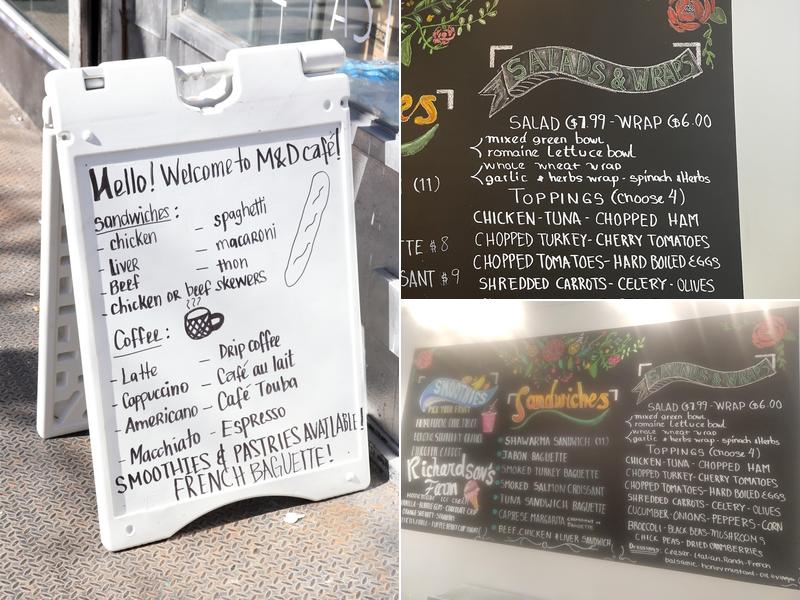 Hello! Welcome to M&D café!
Sandwiches:
- chicken
- liver
- Beef
- chicken or beef skewers
- spaghetti
- macaroni
- thon
Coffee:
- Latte
- Cappuccino
- Americano
- Macchiato
- Drip coffee
- Café au lait
- Café Touba
- Espresso
SMOOTHIES & PASTRIES AVAILABLE!
FRENCH BAGUETTE!
SALADS & WRAPS
SALAD $7.99 - WRAP $6.00
mixed green bowl
romaine lettuce bowl
whole wheat wrap
garlic & herbs wrap - spinach & Herbs
TOPPINGS (choose 4)
CHICKEN - TUNA - CHOPPED HAM
CHOPPED TURKEY - CHERRY TOMATOES
CHOPPED TOMATOES - HARD BOILED EGGS
SHREDDED CARROTS - CELERY - OLIVES
es
(11)
$8
$9
SMOOTHIES
PICK YOUR FRUIT
Richardson's
Farm
Sandwiches
SHAWARMA SANDWICH (11)
JABON BAGUETTE
SMOKED TURKEY BAGUETTE
SMOKED SALMON CROISSANT
TUNA SANDWICH BAGUETTE
CAPRESE MARGARITA
BEEF, CHICKEN & LIVER SANDWICH
SALADS & WRAPS
SALAD $7.99 - WRAP $6.00
mixed green bowl
romaine lettuce bowl
whole wheat wrap
garlic & herbs wrap - spinach & Herbs
TOPPINGS (choose 4)
CHICKEN - TUNA - CHOPPED HAM
CHOPPED TURKEY - CHERRY TOMATOES
CHOPPED TOMATOES - HARD BOILED EGGS
SHREDDED CARROTS - CELERY - OLIVES
CUCUMBER - ONIONS - PEPPERS - CORN
BROCCOLI - BLACK BEANS - MUSHROOMS
CHICK PEAS - DRIED CRANBERRIES
Dressings: Ceasar - Italian, Ranch - French
balsamic honey mustard - oil & vinegar